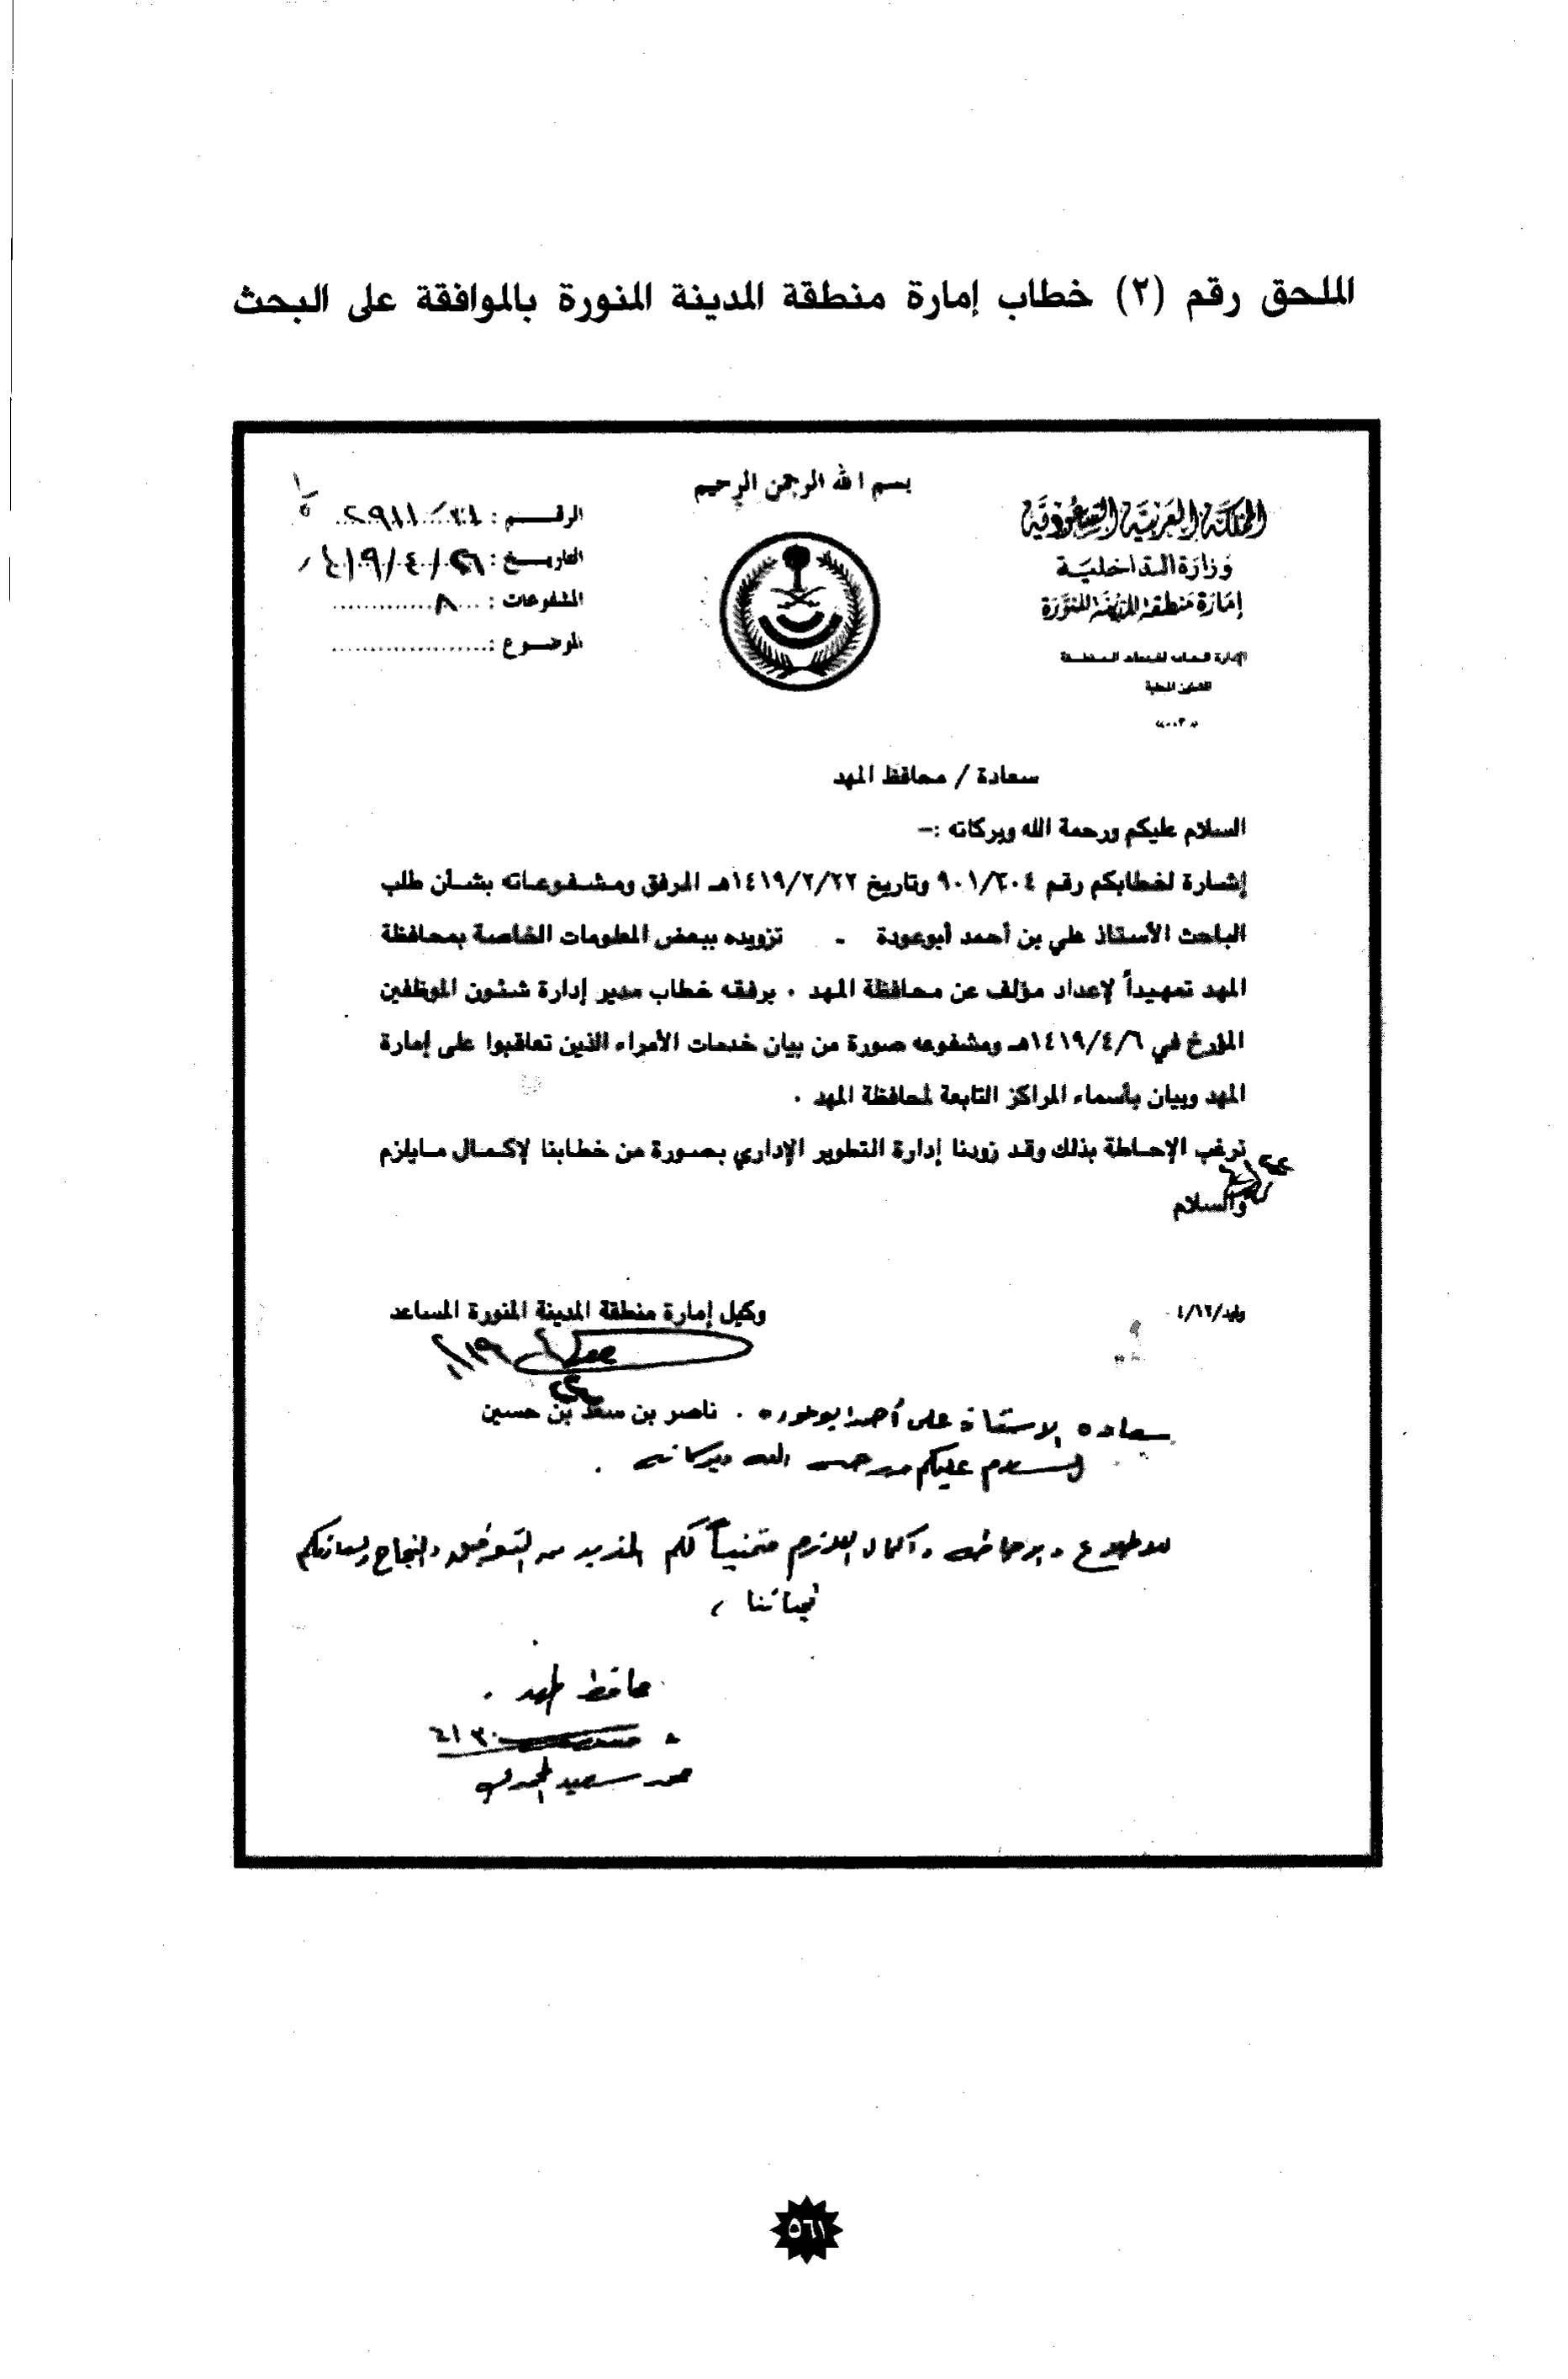 الملحق رقم (٢) خطاب إمارة منطقة المدينة المنورة بالموافقة على البحث
بسم الله الرحمن الرحيم
المملكة العربية السعودية
وزارة الداخلية
إمارة منطقة المدينة المنورة
الرقــــم :
التاريــخ : ٢٦/٤/١٤١٩
المشفوعات : ٨
الموضــوع :
سعادة / محافظ المهد
السلام عليكم ورحمة الله وبركاته :-
إشارة لخطابكم رقم ٩٠١/٢٠٤ وتاريخ ١٤١٩/٢/٢٢هـ المرفق ومشفوعاته بشأن طلب
الباحث الأستاذ علي بن أحمد أبوعودة - تزويده ببعض المعلومات الخاصة بمحافظة
المهد تمهيداً لإعداد مؤلف عن محافظة المهد . يرفقه خطاب مدير إدارة شئون الموظفين
المؤرخ في ١٤١٩/٤/٦هـ ومشفوعه صورة من بيان خدمات الأمراء الذين تعاقبوا على إمارة
المهد وبيان بأسماء المراكز التابعة لمحافظة المهد .
نرغب الإحاطة بذلك وقد زودنا إدارة التطوير الإداري بصورة من خطابنا لإكمال مايلزم
والسلام
وليد/٤/١٦
وكيل إمارة منطقة المدينة المنورة المساعد
ناصر بن سعد بن حسين
سعادة الاستاذ على أحمد ابوعوده .
السلام عليكم ورحمة الله وبركاته .
للاطلاع والاحاطه واكمال اللازم متمنياً لكم المزيد من التوفيق والنجاح ولسعادتكم
تحياتنا ،
محافظ المهد .
٥٦١